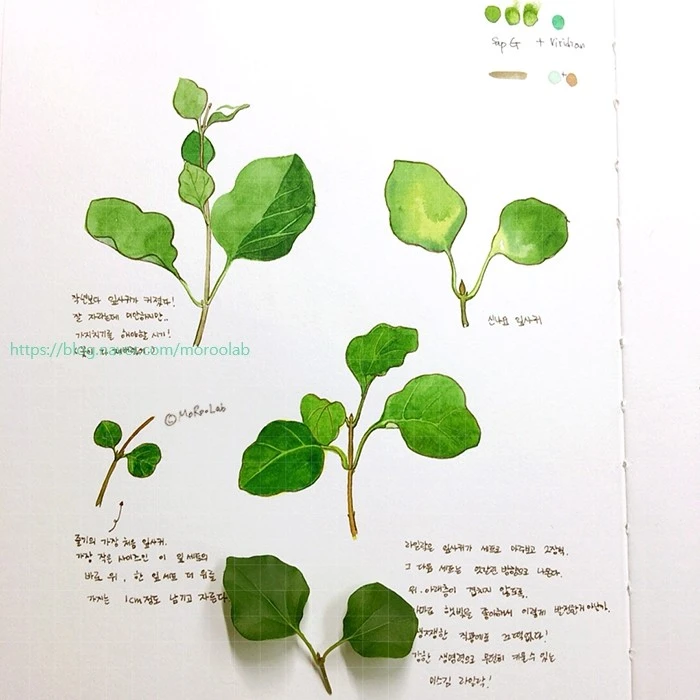 Sap G + Viridian
작년보다 잎사귀가 커졌다!
잘 자라는데 미안하지만..
가지치기를 해야할 시기!
https://blog.naver.com/moroolab
신나요 잎사귀
©MoRooLab
줄기의 가장 처음 잎사귀.
가장 작은 사이즈인 이 잎 세트의
바로 위, 한 잎세트 더 위를
가지는 1cm정도 남기고 자른다
라임락은 잎사귀가 세트로 마주보고 2장씩.
그 다음 세트는 엇갈린 방향으로 나온다.
위, 아래층이 겹치지 않도록.
햇빛을 좋아해서 이렇게 발전한거 아닌가.
생명력으로 무던히 키울 수 있는